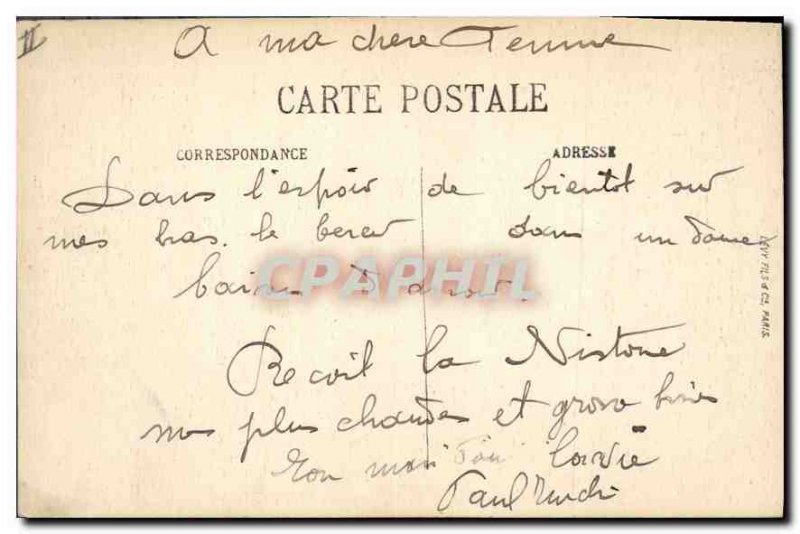 II
A ma chere Femme
CARTE POSTALE
CORRESPONDANCE
ADRESSE
Dans l'espoir de bientot sur
mes bras. le bercer dans un
baiser d'amour.
LEVY FILS & Cie, PARIS.
CPAPHIL
Recoit la Nistone
mes plus chaudes et gross
Ton mari
Paul